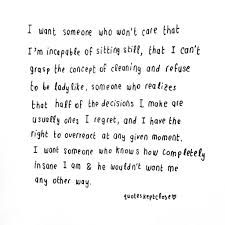 I want someone who won't care that
I'm incapable of sitting still, that I can't
grasp the concept of cleaning and refuse
to be ladylike, someone who realizes
that half of the decisions I make are
usually ones I regret, and I have the
right to overreact at any given moment.
I want someone who knows how completely
insane I am & he wouldn't want me
any other way.
quoteskeptclose♡